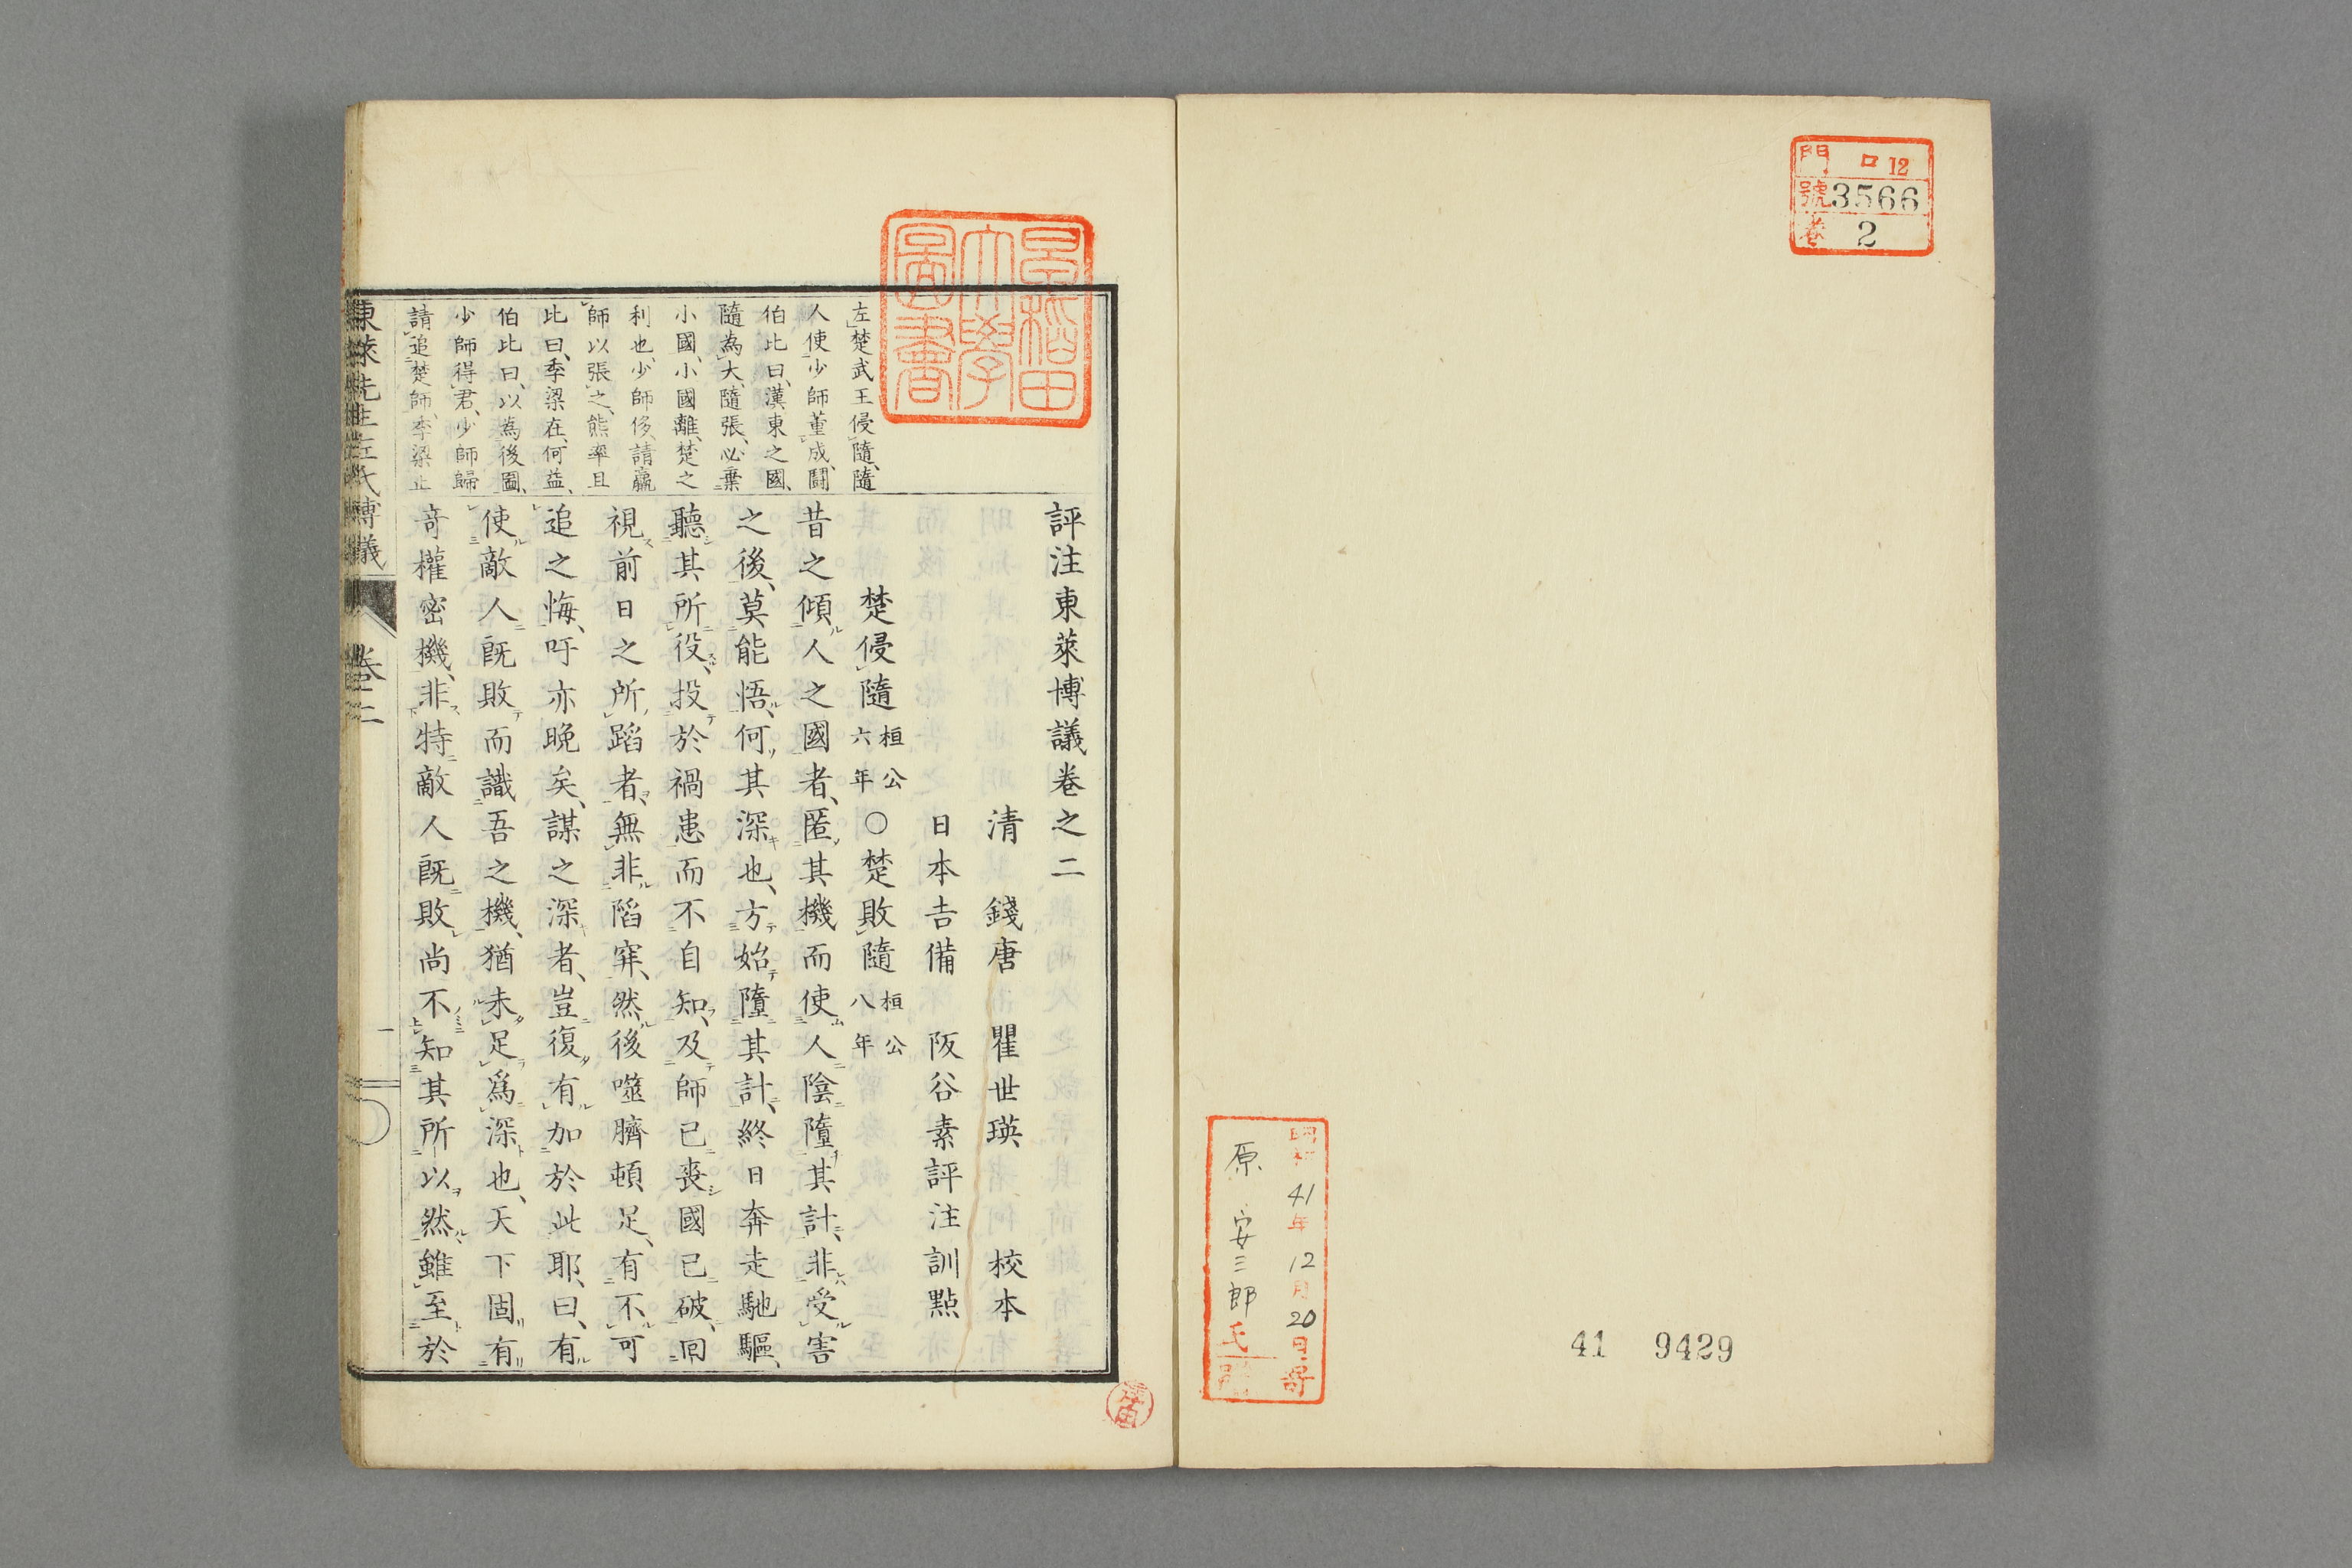 門 口12
號3566
卷 2
昭和41年12月20日寄
原安三郎氏贈
41 9429
早稲田
大學
圖書
評注東萊博議卷之二
清 錢唐 瞿世瑛 校本
日本吉備 阪谷素評注訓點
楚侵隨桓公六年〇楚敗隨桓公八年
昔之傾人之國者、匿其機而使人陰墮其計、非受害
之後、莫能悟、何其深也、方始墮其計、終日奔走馳驅、
聽其所役、投於禍患而不自知、及師已喪國已破、回
視前日之所蹈者、無非陷穽、然後噬臍頓足、有不可
追之悔、吁亦晚矣、謀之深者、豈復有加於此耶、曰、有
使敵人既敗而識吾之機、猶未足爲深也、天下固有
奇權密機、非特敵人既敗尚不知其所以然、雖至於
左楚武王侵隨、隨
人使少師董成、鬪
伯比曰、漢東之國、
隨為大、隨張、必棄
小國、小國離、楚之
利也、少師侈、請羸
師以張之、熊率且
比曰、季梁在、何益、
伯比曰、以為後圖、
少師得君、少師歸
請追楚師、季梁止
東萊先生左氏博議 卷二 一